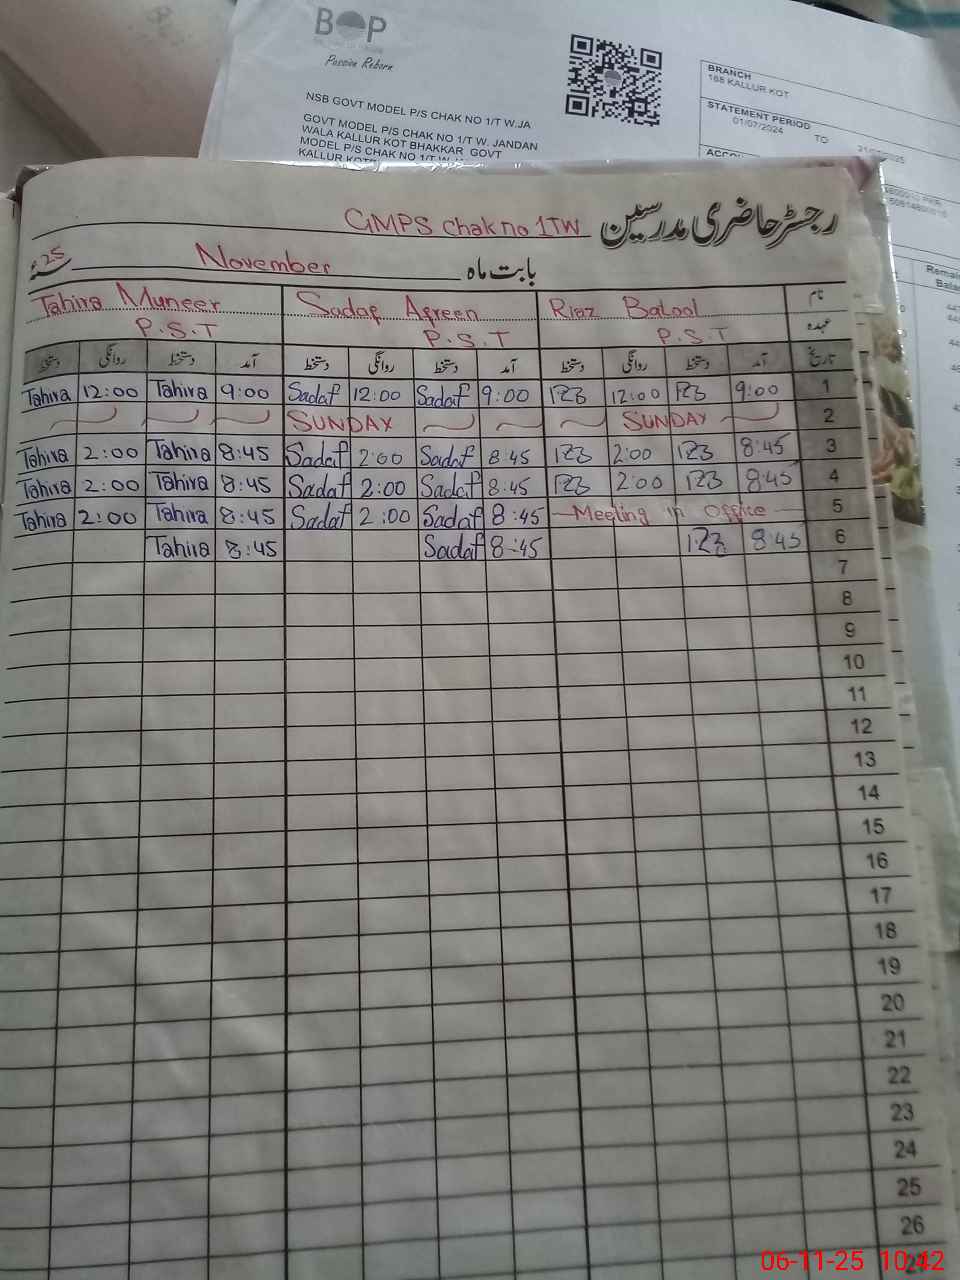 BOP
Passion Reborn
NSB GOVT MODEL P/S CHAK NO 1/T W.JA
GOVT MODEL P/S CHAK NO 1/T W. JANDAN
WALA KALLUR KOT BHAKKAR GOVT
MODEL P/S CHAK NO 1/T W.
KALLUR KOT
BRANCH
168 KALLUR KOT
STATEMENT PERIOD
01/07/2024 TO
Remai
Bala
رجسٹر حاضری مدرسین GMPS Chak no 1TW
بابت ماہ November 25
نام Riaz Balool Sadaf Afreen Tahira Muneer
عہدہ P.S.T P.S.T P.S.T
تاریخ آمد دستخط روانگی دستخط آمد دستخط روانگی دستخط آمد دستخط روانگی دستخط
Tahira 12:00 Tahira 9:00 Sadaf 12:00 Sadaf 9:00 12:00 9:00 1
SUNDAY SUNDAY 2
Tahira 2:00 Tahira 8:45 Sadaf 2:00 Sadaf 8:45 2:00 8:45 3
Tahira 2:00 Tahira 8:45 Sadaf 2:00 Sadaf 8:45 2:00 8:45 4
Tahira 2:00 Tahira 8:45 Sadaf 2:00 Sadaf 8:45 Meeting in Office 5
Tahira 8:45 Sadaf 8:45 8:45 6
7
8
9
10
11
12
13
14
15
16
17
18
19
20
21
22
23
24
25
26
06-11-25 10:42